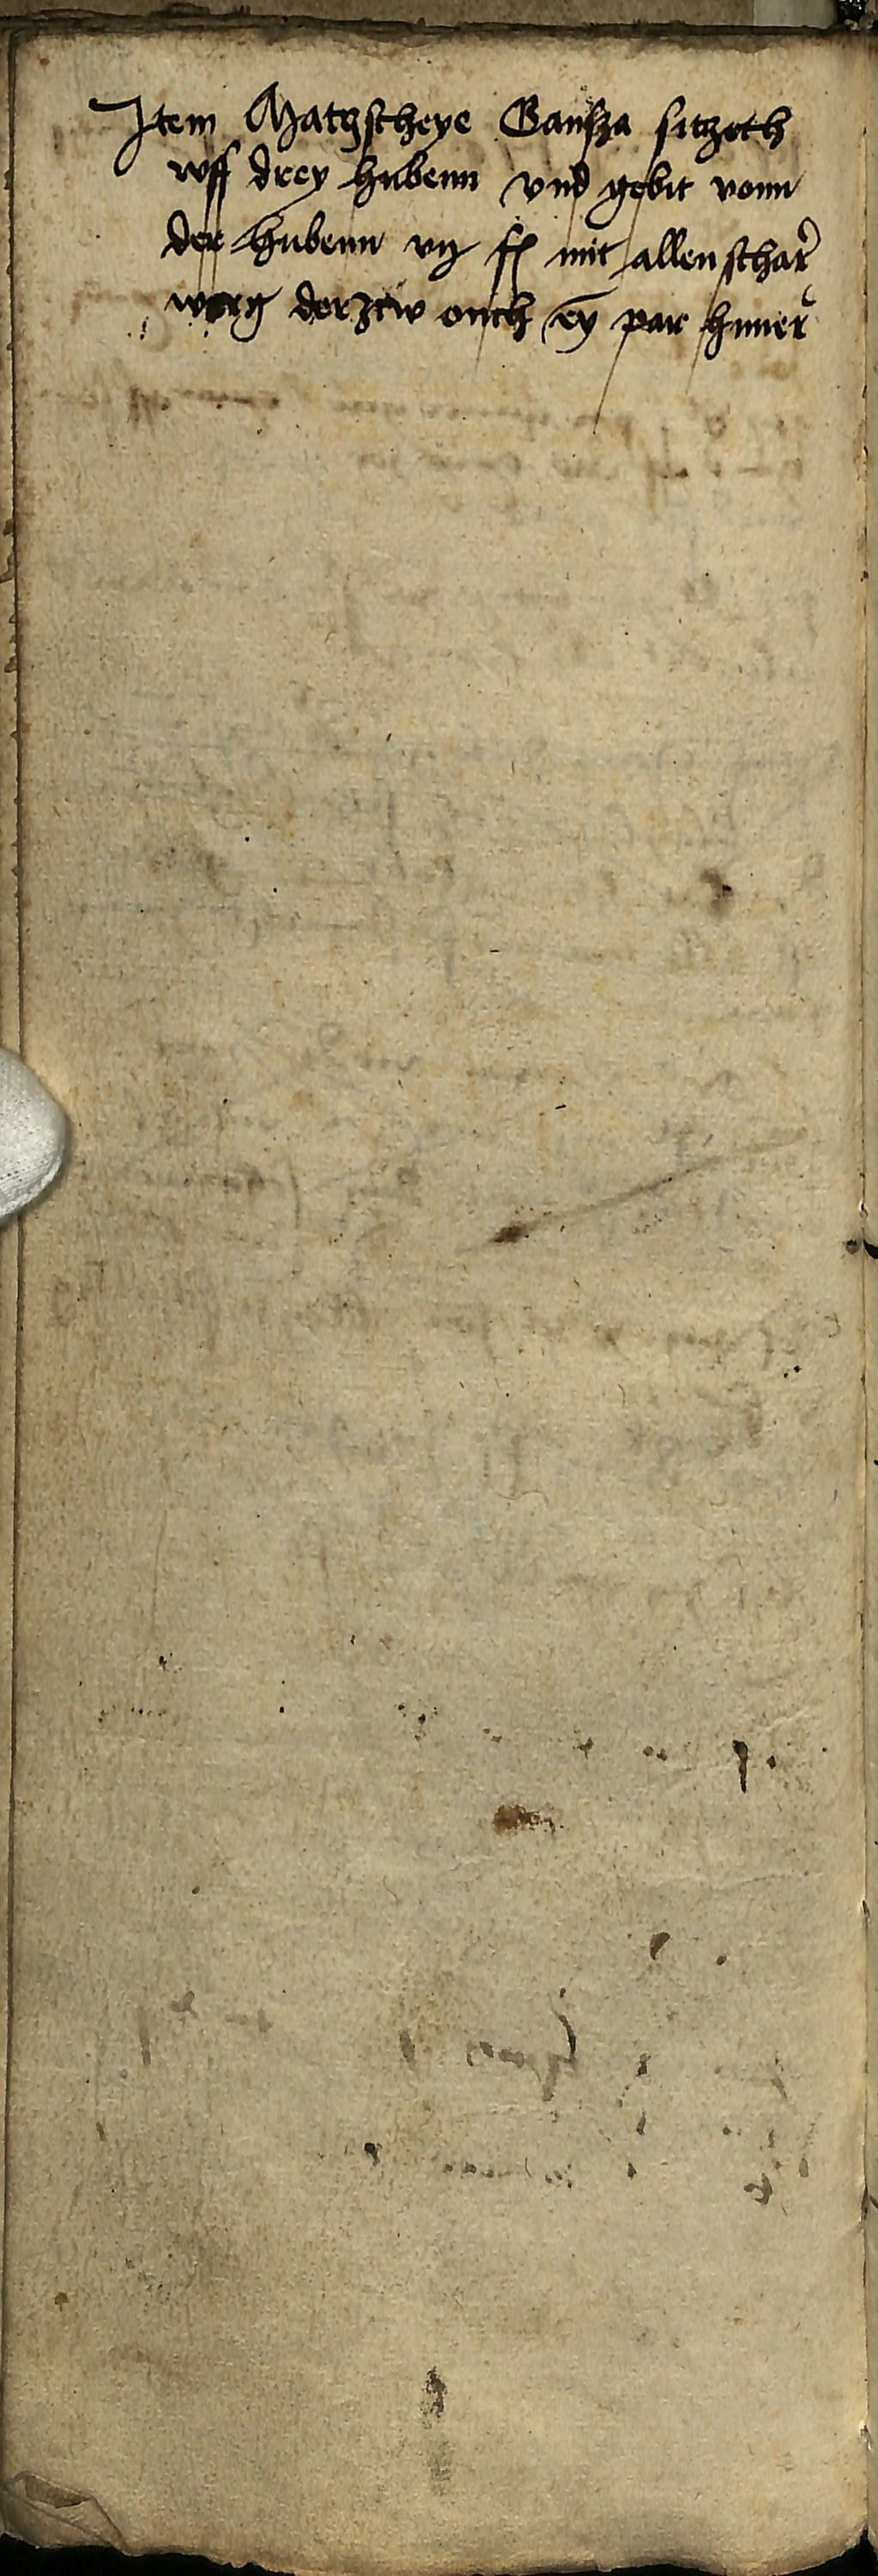 Item Matzscheye Gansza sitzeth
wff drey hubenn vnd gebit vonn
der hubenn vij sc mit allen schar
werg derztw ouch ey par huner